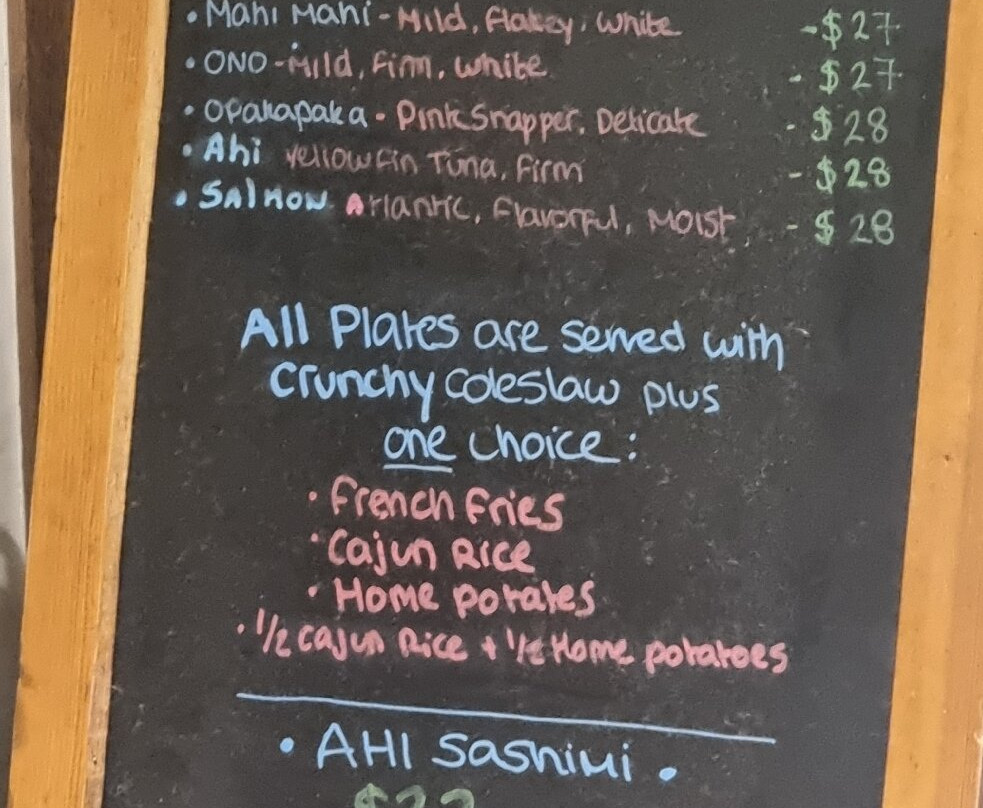 • Mahi Mahi - Mild, Flakey, White - $27
• ONO - Mild, Firm, White - $27
• Opakapaka - Pink Snapper, Delicate - $28
• Ahi Yellowfin Tuna, Firm - $28
• Salmon Atlantic, Flavorful, Moist - $28
All Plates are served with
Crunchy coleslaw plus
one choice:
• French Fries
• Cajun Rice
• Home potates
• 1/2 Cajun Rice + 1/2 Home potatoes
• AHI Sashimi •